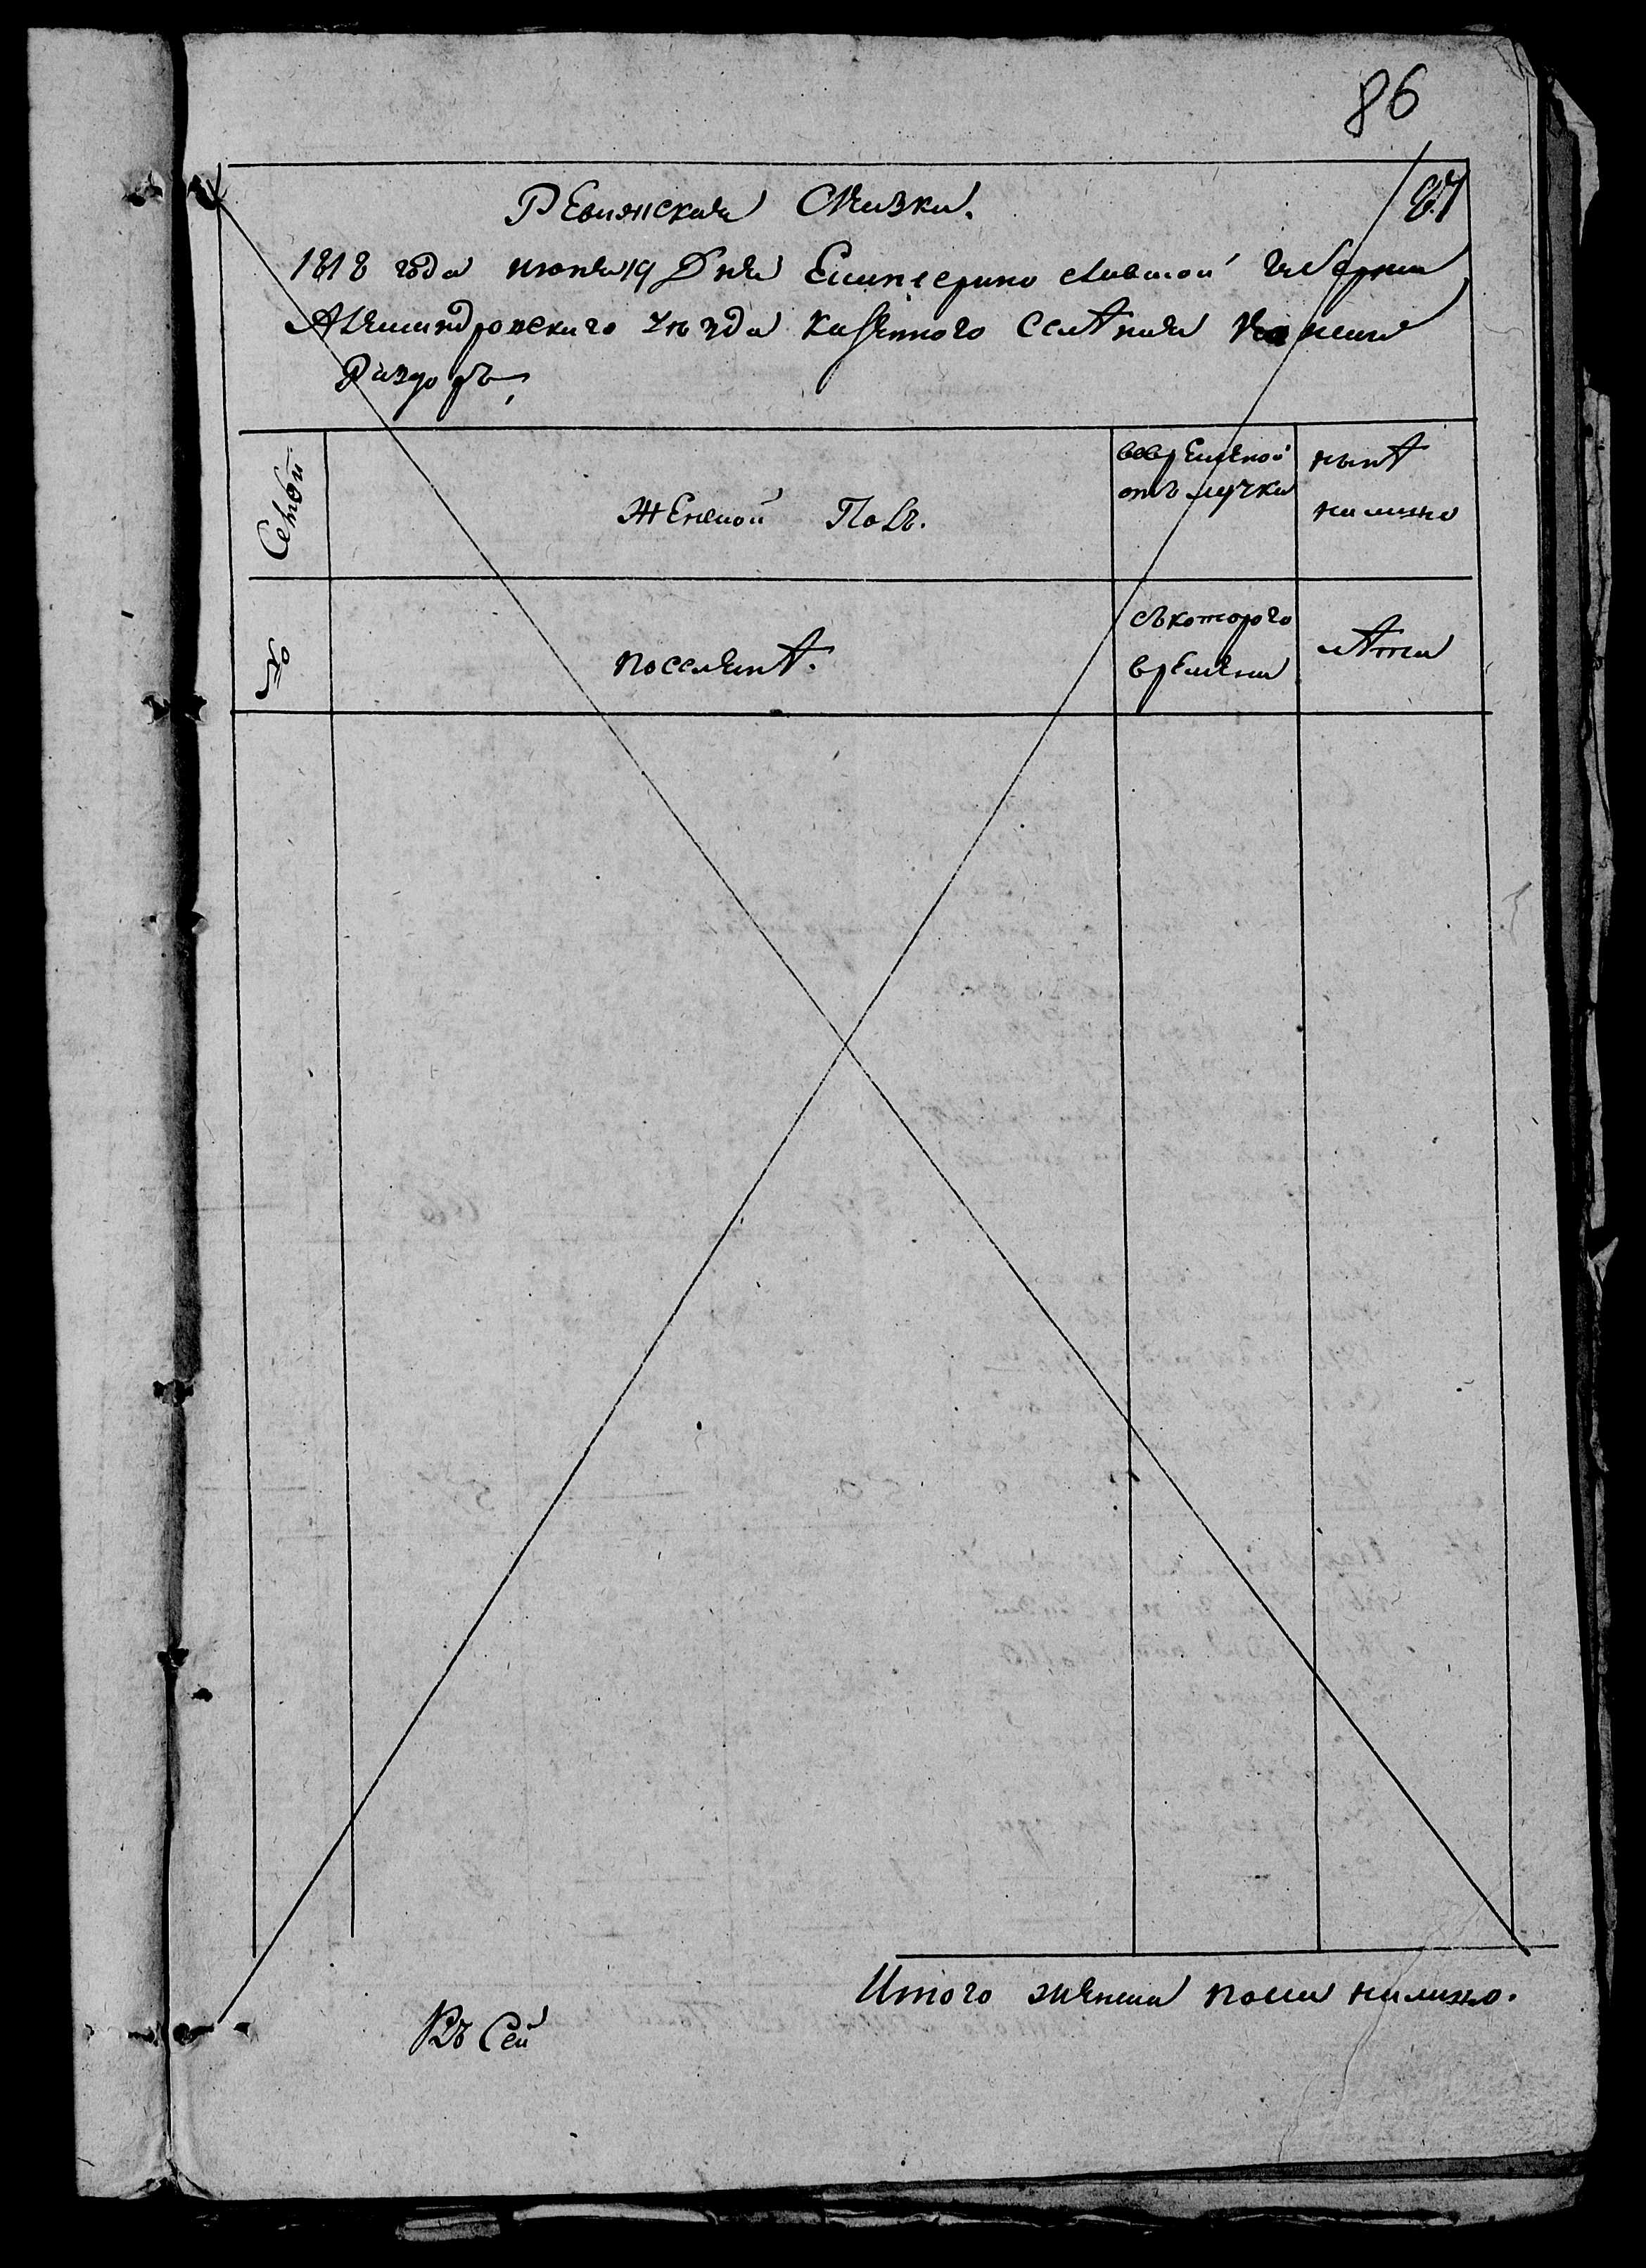 86
87
Ревизская Сказка.
1818 года июня 19 Дня Екатерино славской губернии
Александровского уезда казенного селения
Раздоръ,
Семьи
женской Полъ.
вовременой
отъ лучки
ныне
налицо
№
поселяне.
съкоторого
времени
лета
Итого женска пола налицо.
Къ Сей